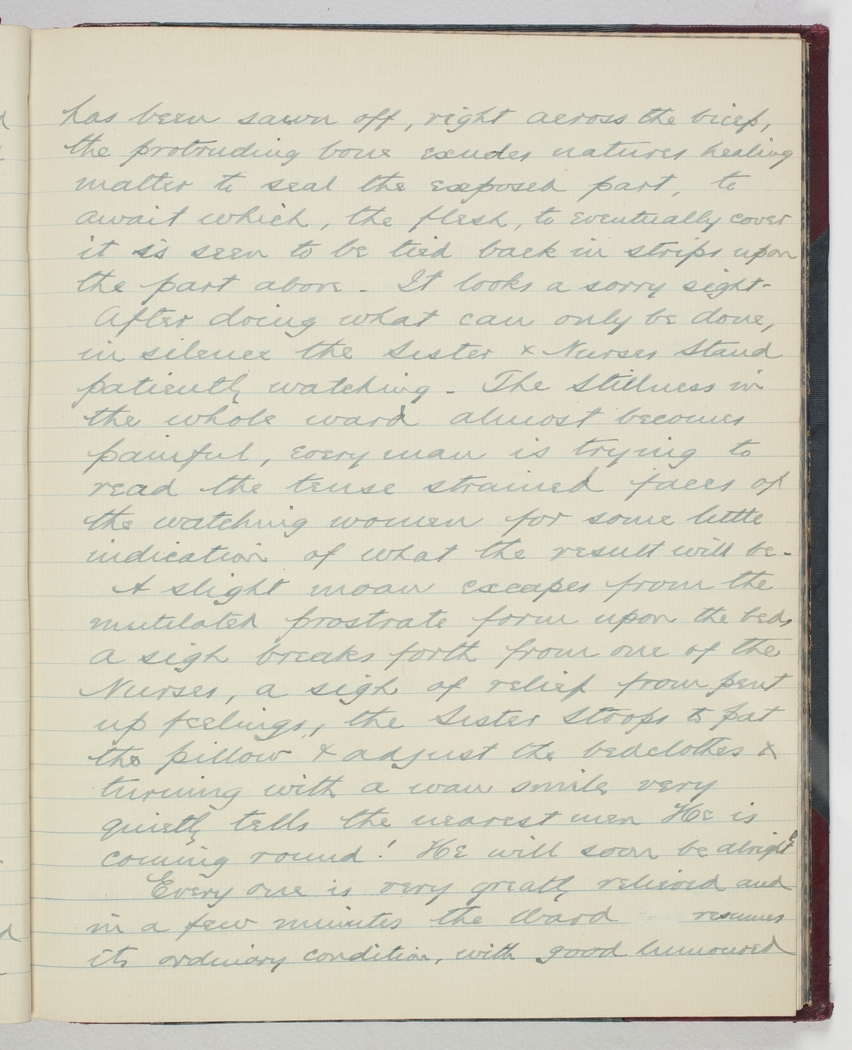 has been sawn off, right across the bicep,
the protruding bone exudes natures healing
matter to seal the exposed part, to
await which, the flesh, to eventually cover
it is seen to be tied back in strips upon
the part above. It looks a sorry sight.
After doing what can only be done,
in silence the Sister & Nurses stand
patiently watching. The stillness in
the whole ward almost becomes
painful, every man is trying to
read the tense strained faces of
the watching women for some little
indication of what the result will be.
A slight moan escapes from the
mutilated prostrate form upon the bed,
a sigh breaks forth from one of the
Nurses, a sigh of relief from pent
up feelings, the Sister stoops to pat
the pillow & adjust the bedclothes &
turning with a wan smile very
quietly tells the nearest men He is
coming round! He will soon be alright
Every one is very greatly relieved and
in a few minutes the Ward resumes
its ordinary condition, with good humoured